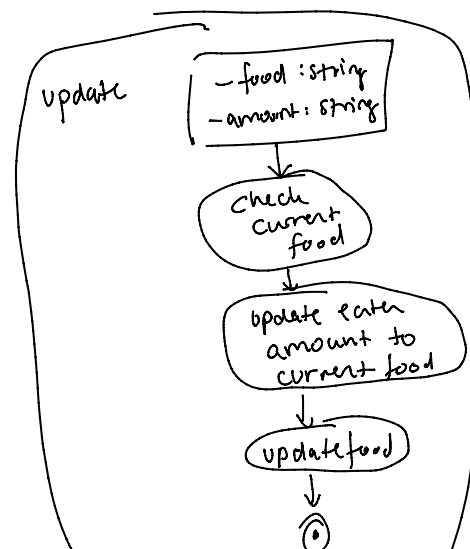 update
- food : string
- amount : string
check
current
food
update eaten
amount to
current food
updatefood